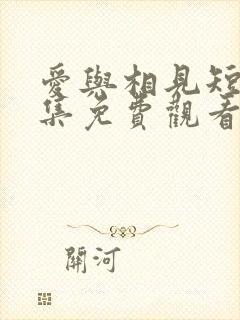 愛與相見短
集免費觀看
關河